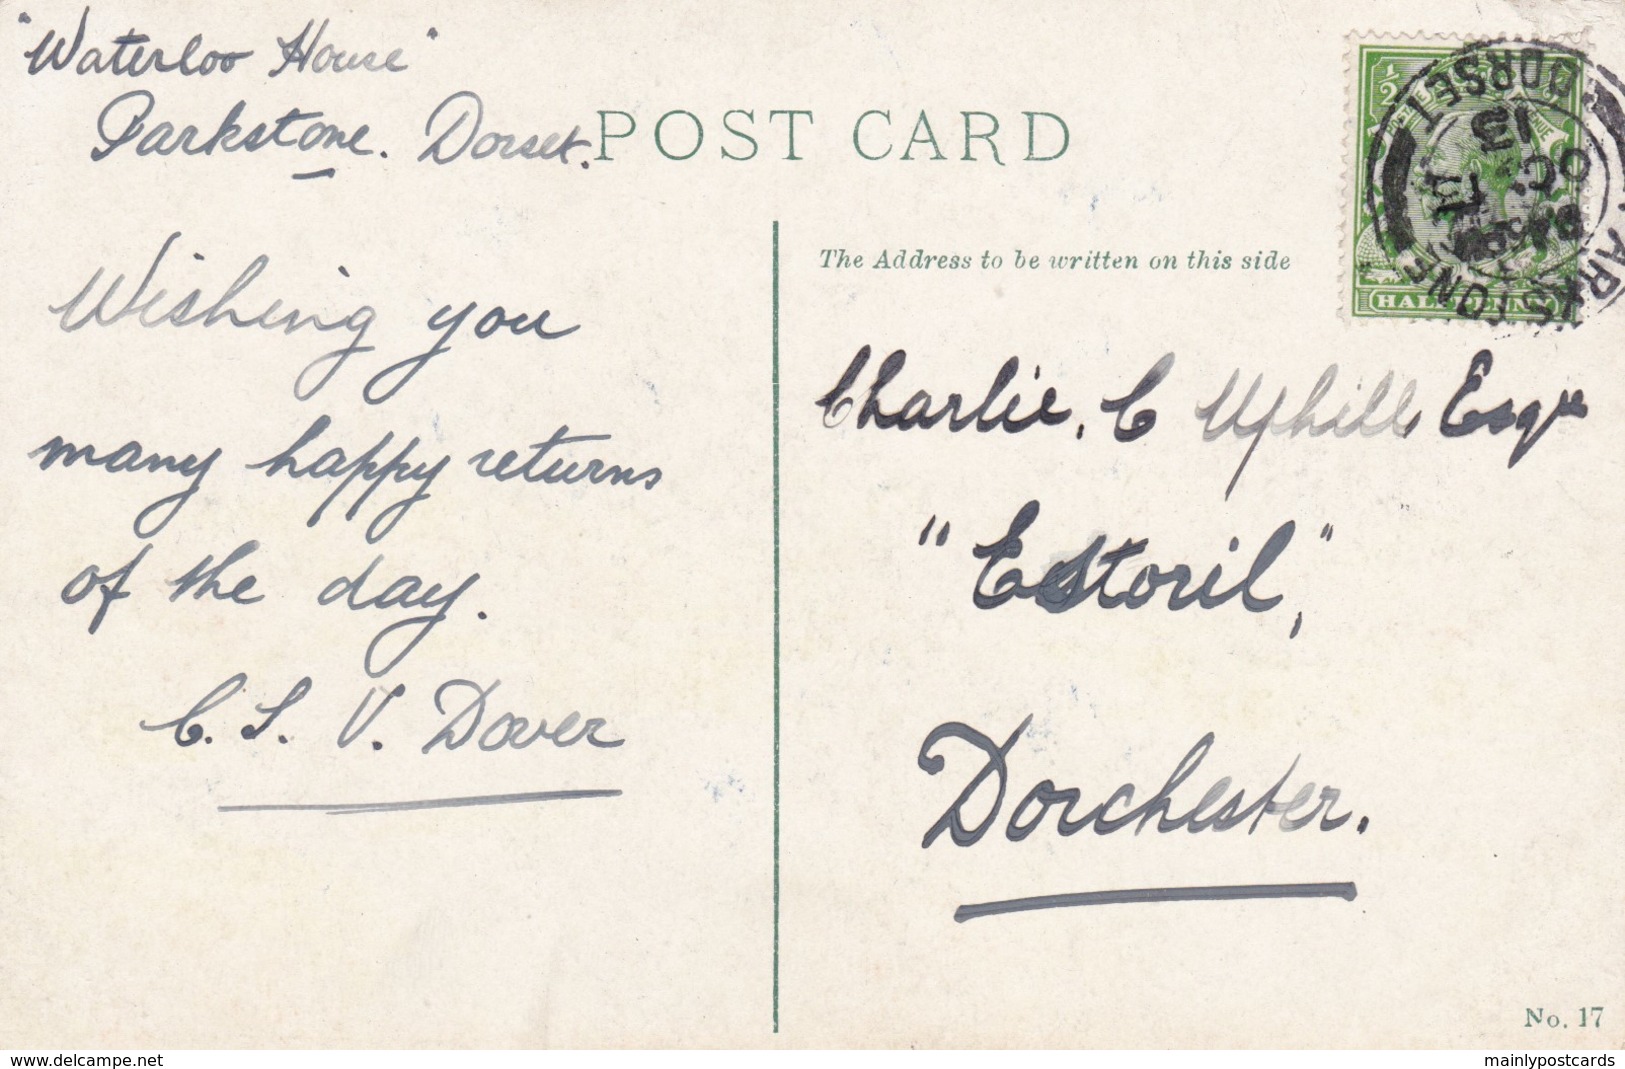 "Waterloo House"
Parkstone. Dorset.
POST CARD
Wishing you
many happy returns
of the day.
C. S. V. Dover
The Address to be written on this side
Charlie. C Uphill, Esqre
"Estoril,"
Dorchester.
HALFPENNY
PARKSTONE
DORSET
OC 7
13
No. 17
www.delcampe.net
mainlypostcards